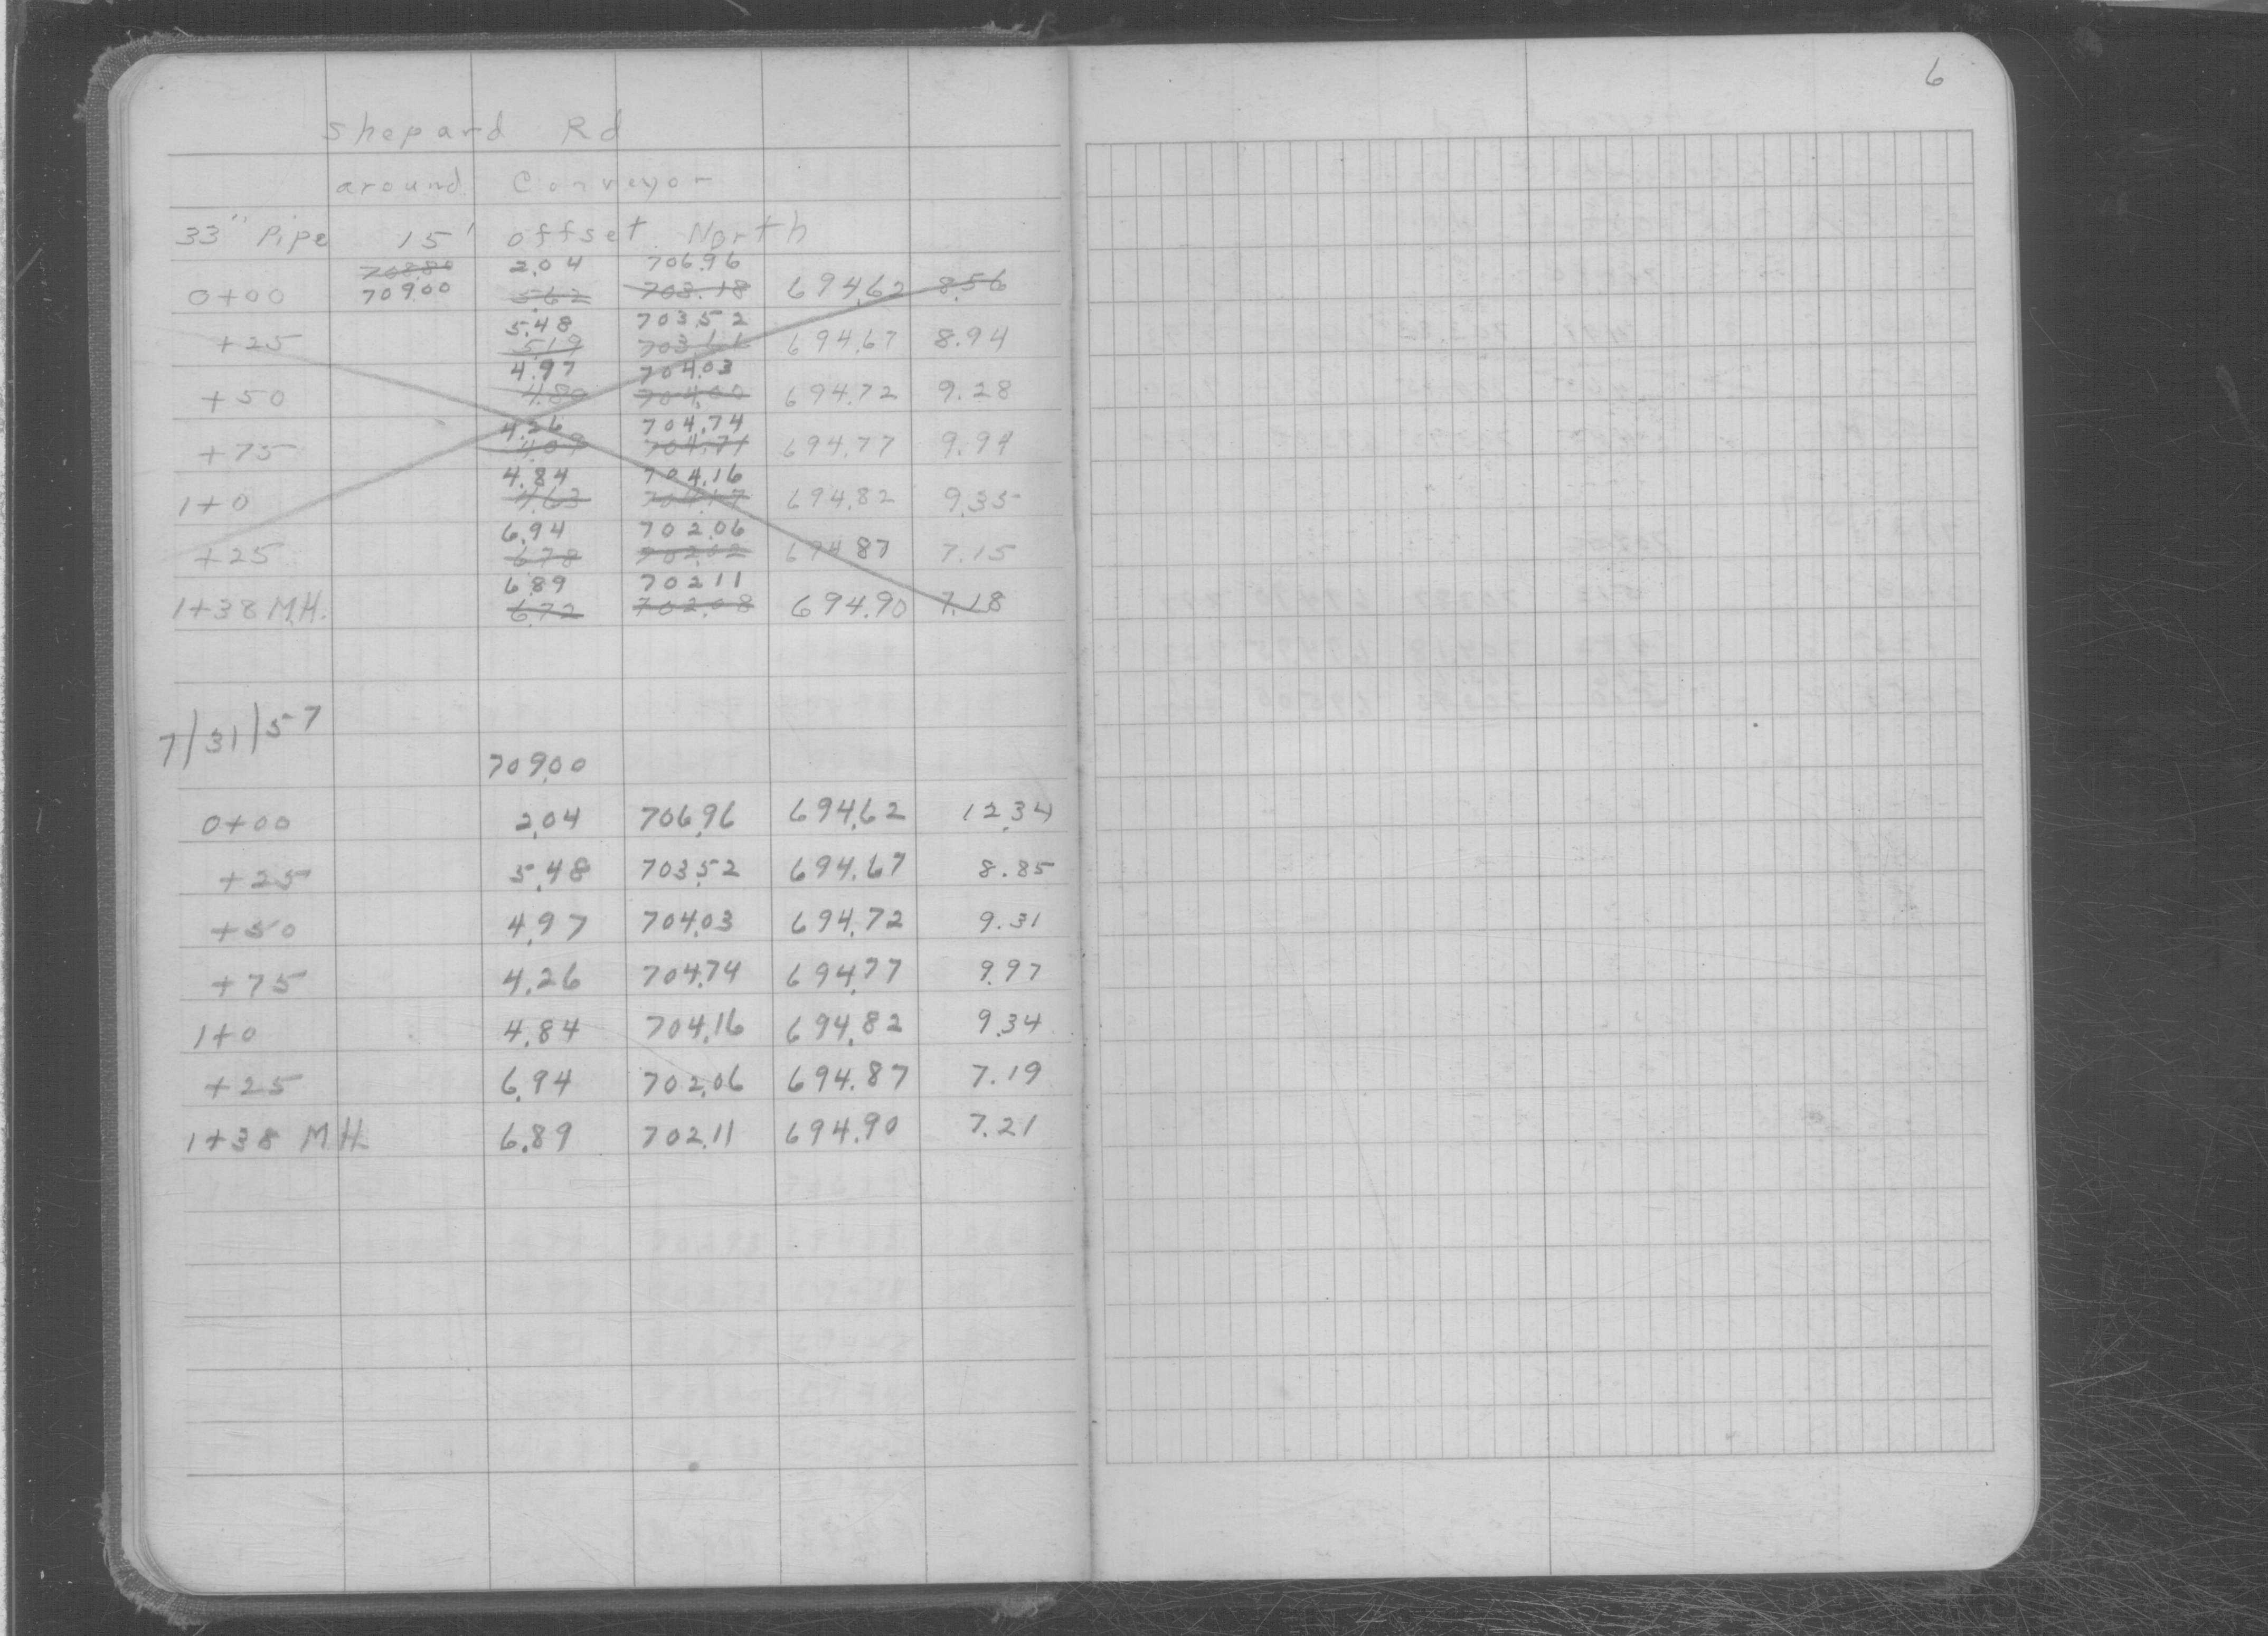 6
Shepard Rd
around Conveyor
33" Pipe 15' offset North
708.80 2.04 706.96
0+00 709.00 5.62 703.18 694.62 8.56
5.48 703.52
+25 5.19 703.61 694.67 8.94
4.97 704.03
+50 4.80 704.00 694.72 9.28
4.26 704.74
+75 4.09 704.71 694.77 9.94
4.84 704.16
1+0 4.63 704.17 694.82 9.35
6.94 702.06
+25 6.78 702.02 694.87 7.15
6.89 702.11
1+38 M.H. 6.72 702.08 694.90 7.18
7/31/57
709.00
0+00 2.04 706.96 694.62 12.34
+25 5.48 703.52 694.67 8.85
+50 4.97 704.03 694.72 9.31
+75 4.26 704.74 694.77 9.97
1+0 4.84 704.16 694.82 9.34
+25 6.94 702.06 694.87 7.19
1+38 M.H. 6.89 702.11 694.90 7.21